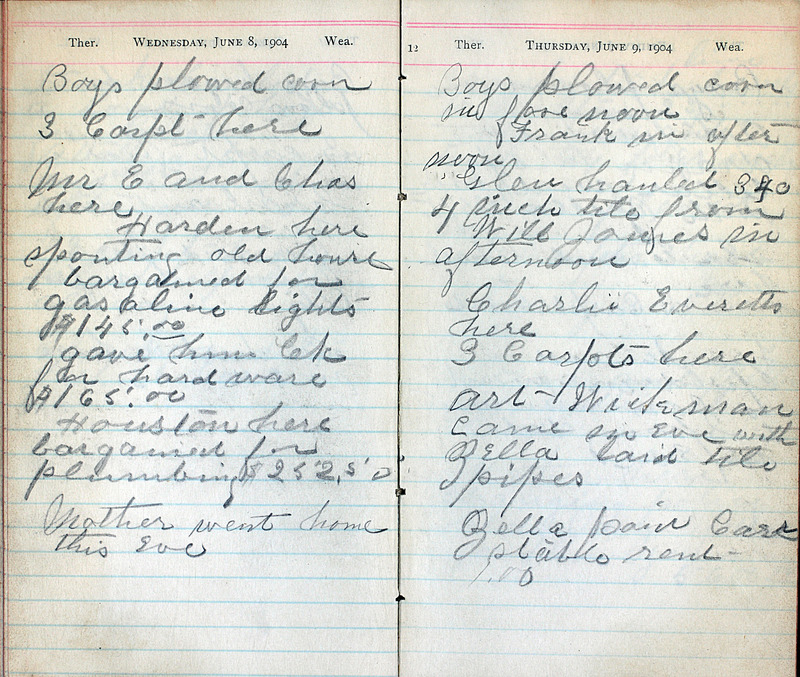 Ther. Wednesday, June 8, 1904 Wea.
Boys plowed corn
3 Carpt here
Mr E and Chas
here
Harden here
spouting old house
bargained for
gasaline lights
$145.00
gave him Ck
for hardware
$165.00
Houston here
bargained for
plumbing $252.50
Mother went home
this Eve
12 Ther. Thursday, June 9, 1904 Wea.
Boys plowed corn
in fore noon
Frank in after
noon
Glen hauled 340
4 inch tile from
Will James in
afternoon
Charlie Everetts
here
3 Carpts here
Art Wickman
came in Eve with
Zella laid tile
pipes
Zella paid Carr
stable rent
1.00